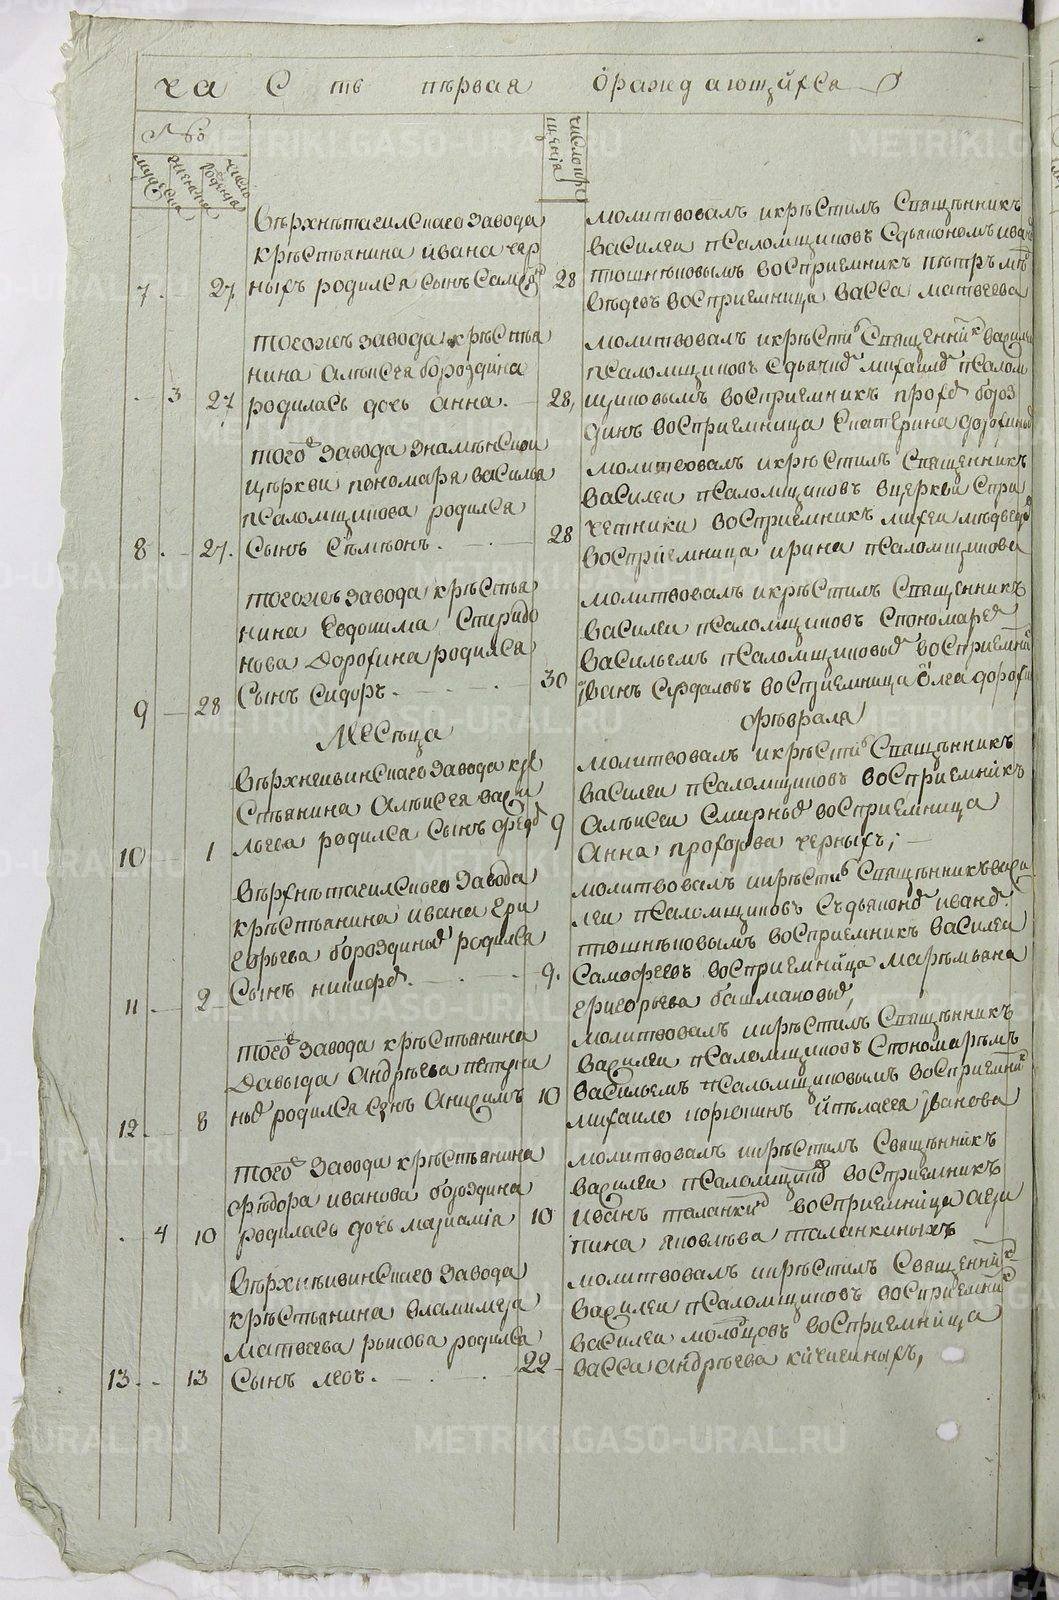 ча С ть пѣрвая ѡраждающийся
№
мужеска
женска
число рожденїа
число кре
щенїа
Вѣрхнѣтагилскаго завода
крѣстьянина ивана чер
ныхъ родился сынъ
7 27 28
молитвовалъ икрѣстилъ Священникъ
василеи псаломщиковъ Сдьякономъ иваном
тюшняковымъ восприемник пѣтръ
восприемница васса матвеева
тогожъ завода крѣстья
нина алѣксея бороздина
родилась дочь анна.
3 27 28
молитвовалъ икрѣсти Священник василеи
псаломщиковъ Сдьячко михаило псалом
щиковымъ восприемникъ прохо бороз
динъ восприемница Екатерина
того завода знамѣнской
цѣркви пономаря василья
псаломщикова родился
Сынъ Сѵмѣонъ.
8 27. 28
молитвовалъ икрѣстилъ Священникъ
василеи псаломщиковъ вцеркви Спри
четники восприемник михеи мѣдведе
восприемница ирина псаломщикова
тогожъ завода крѣстья
нина Евдокима Спиридо
нова Дорофина родился
Сынъ Сидоръ.
9 28 30
молитвовалъ икрѣстилъ Священникъ
василеи псаломщиковъ Спономаре
васильемъ псаломщиковы восприемни
иванъ Суздаловъ восприемница ѡлга дорофи
Месѣца фѣвраля
Вѣрхнеивинскаго завода кре
Стьянина Алѣксея васи
льева родился Сынъ федо
10 1 9
молитвовалъ икрѣсти Священникъ
василеи псаломщиковъ восприемникъ
Алѣксеи Смирны восприемница
Анна прохорова черныхъ;
Вѣрхнѣтагилскаго завода
крѣстьянина ивана гри
горьева бороздины родился
Сынъ никифо.
11 2 9.
молитвовалъ икрѣсти Священникъ васи
леи псаломщиковъ Съдьяконо ивано
тюшняковымъ восприемник василеи
Самофеевъ восприемница марѣмьяна
григорьева башмаковы,
того завода крѣстьянина
Давыда Андрѣева
родился Сынъ Анисимъ
12 8 10
молитвовалъ икрѣстилъ Священникъ
василеи псаломщиковъ Спономарѣмъ
васильемъ псаломщиковымъ восприемник
михаило корюкинъ ипѣлагея иванова
того завода крѣстьянина
фѣдора иванова бороздина
родилась дочь мариамїа
4 10 10
молитвовалъ икрѣстилъ Священникъ
василеи псаломщико восприемникъ
иванъ таланки восприемница агри
пина яковлѣва таланкиныхъ
Вѣрхнѣивинскаго завода
крѣстьянина владимера
матвеева рыкова родился
Сынъ левъ.
13 13 22
молитвовалъ икрѣстилъ Священник
василеи псаломщиковъ восприемник
василеи молоцовъ восприемница
васса андрѣева кичигиныхъ,
METRIKI.GASO-URAL.RU